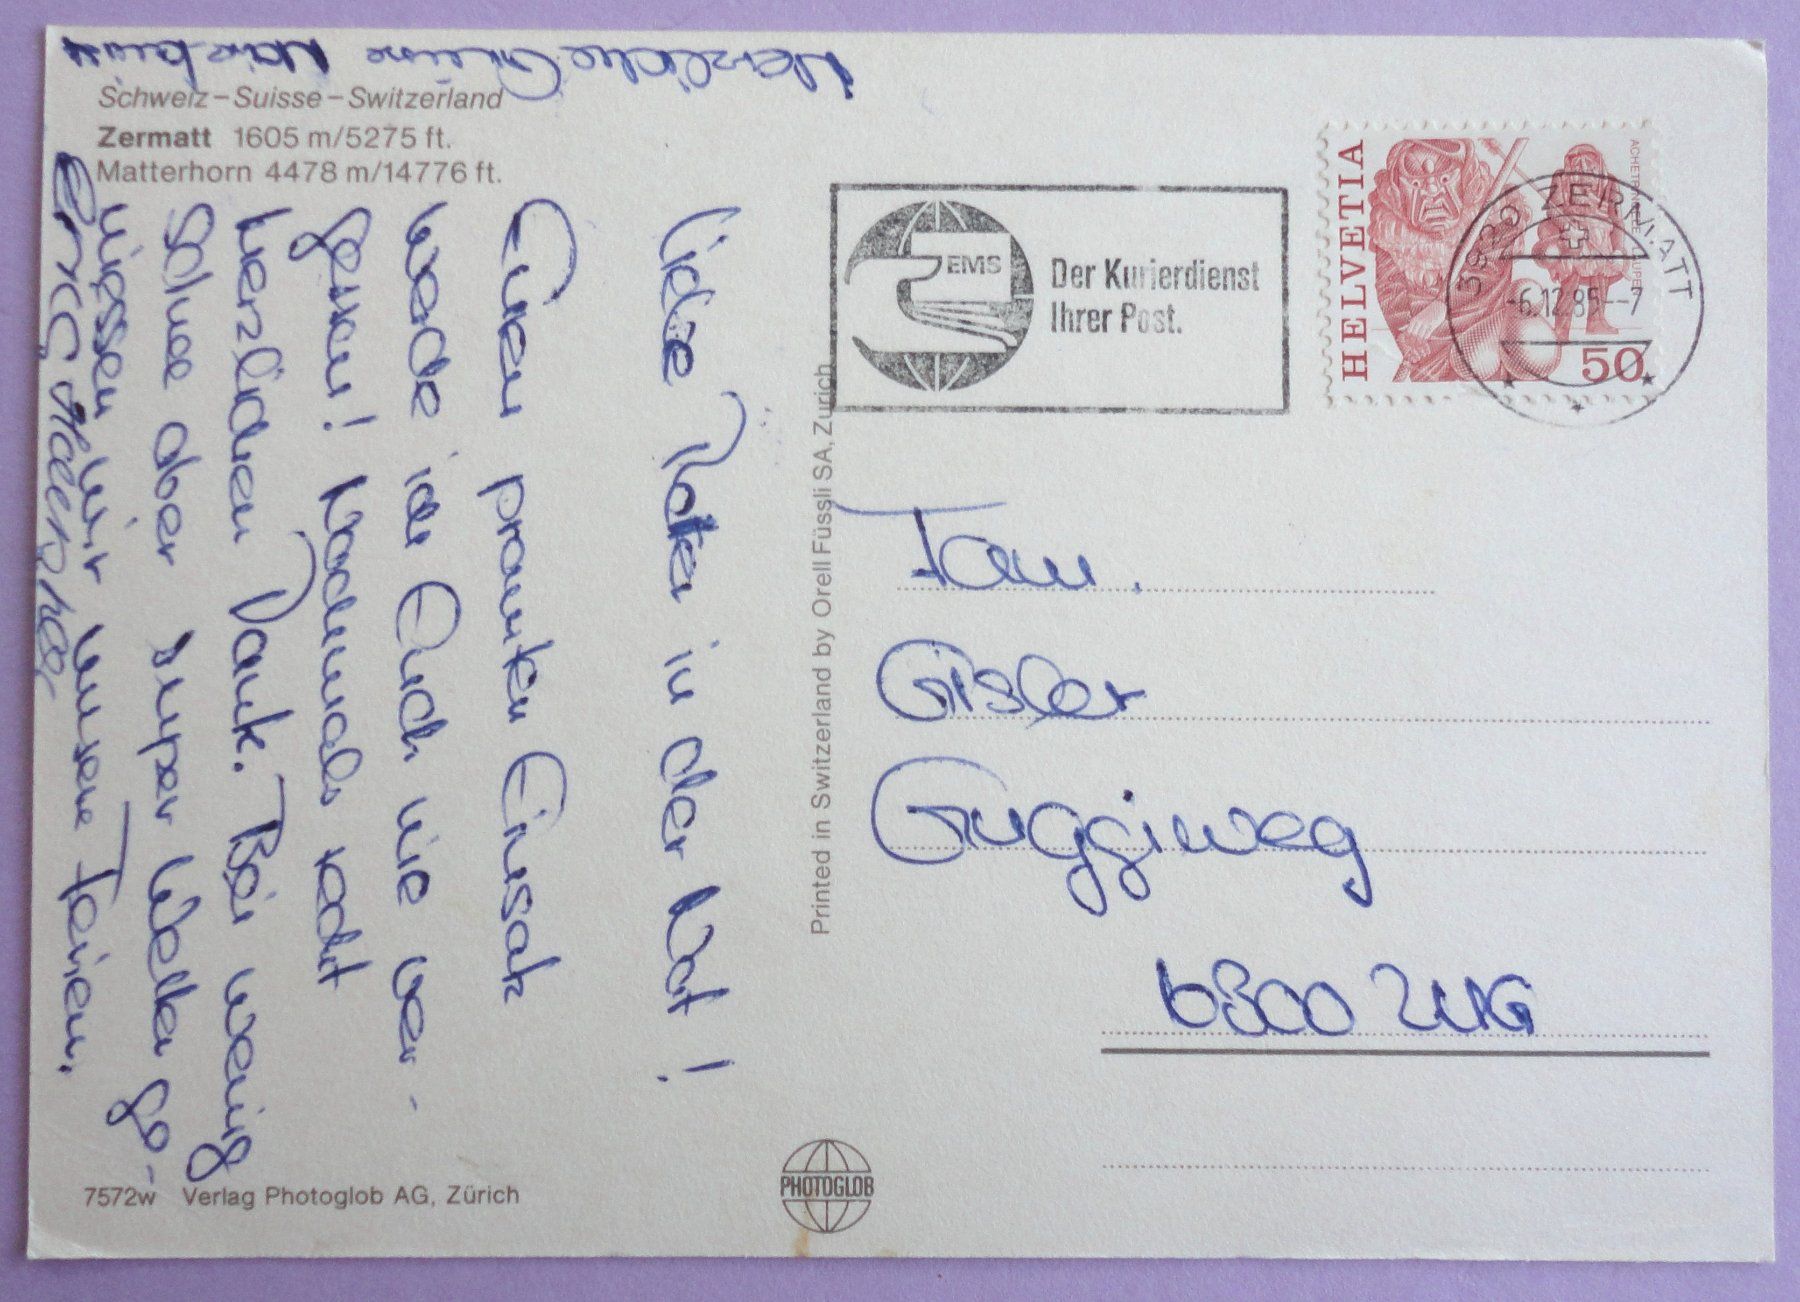 Schweiz – Suisse – Switzerland
Zermatt 1605 m/5275 ft.
Matterhorn 4478 m/14776 ft.
Liebe Retter in der Not!
Euren prompten Einsatz
werde ich Euch nie ver-
gessen! Nochmals recht
herzlichen Dank. Bei wenig
Schnee aber super Wetter ge-
niessen wir unsere Ferien.
Herzliche Grüsse
Printed in Switzerland by Orell Füssli SA, Zurich
EMS
Der Kurierdienst
Ihrer Post.
HELVETIA
50
3920 ZERMATT
-6.12.85--7
Fam.
Gisler
Guggiweg
6300 ZUG
7572w Verlag Photoglob AG, Zürich
PHOTOGLOB